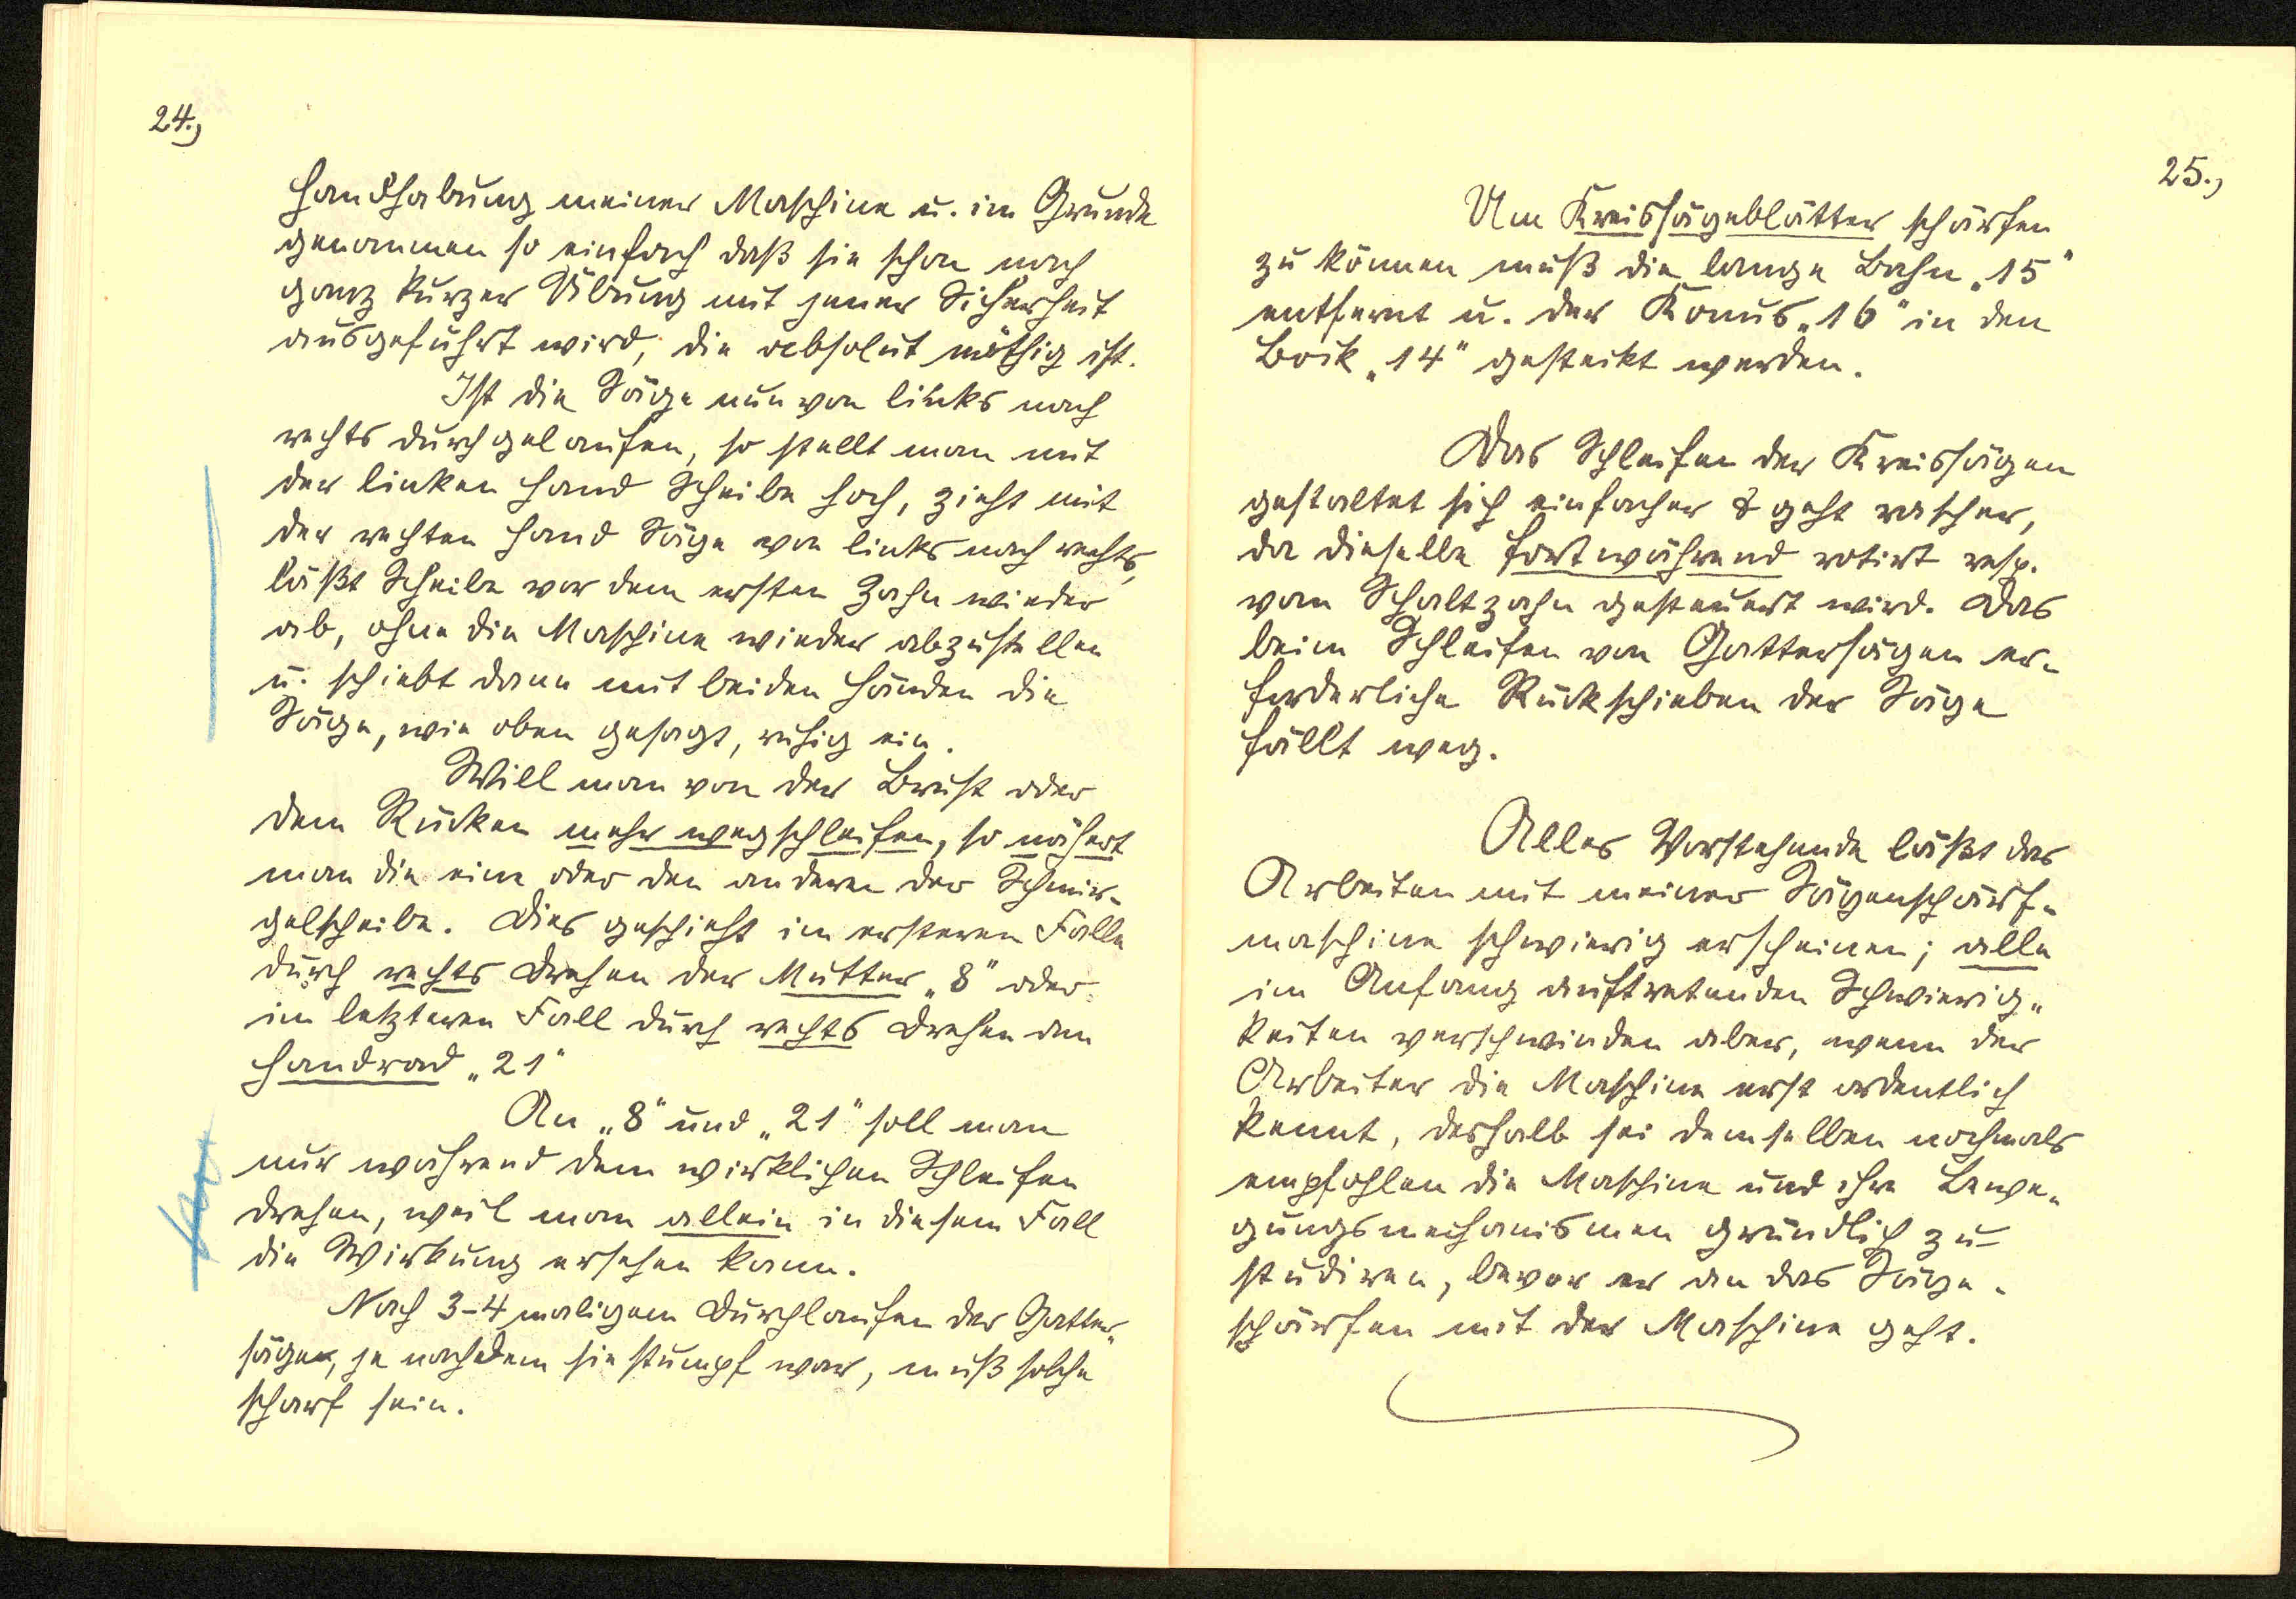 24.,
Handhabung meiner Maschine u. im Grunde
genommen so einfach daß sie schon nach
ganz kurzer Übung mit jener Sicherheit
ausgeführt wird, die absolut nöthig ist.
Ist die Säge nun von links nach
rechts durchgelaufen, so stellt man mit
der linken Hand Scheibe hoch, zieht mit
der rechten Hand Säge von links nach rechts,
läßt Scheibe vor dem ersten Zahn wieder
ab, ohne die Maschine wieder abzustellen
u. schiebt dann mit beiden Händen die
Säge, wie oben gesagt, ruhig ein.
Will man von der Brust oder
dem Rücken mehr wegschleifen, so nähert
man die eine oder den anderen der Schmir-
gelscheibe. Dies geschieht im ersteren Falle
durch rechts Drehen der Mutter „8" oder
im letzteren Fall durch rechts Drehen am
Handrad „21"
An „8" und „21" soll man
nur während dem wirklichen Schleifen
drehen, weil man allein in diesem Fall
die Wirkung ersehen kann.
Nach 3-4 maligem Durchlaufen der Gatter-
säge, je nachdem sie stumpf war, muß solche
scharf sein.
25.,
Um Kreissägeblätter schärfen
zu können muß die lange Bahn „15"
entfernt u. der Konus „16" in den
Bock „14" gesteckt werden.
Das Schleifen der Kreissägen
gestaltet sich einfacher & geht rascher,
da dieselbe fortwährend rotirt resp.
vom Schaltzahn gesteuert wird. Das
beim Schleifen von Gattersägen er-
forderliche Rückschieben der Säge
fällt weg.
Alles Vorstehende läßt das
Arbeiten mit meiner Sägenschärf-
maschine schwierig erscheinen; alle
im Anfang auftretenden Schwierig-
keiten verschwinden aber, wenn der
Arbeiter die Maschine erst ordentlich
kennt, deshalb sei demselben nochmals
empfohlen die Maschine und ihre Bewe-
gungsmechanismen gründlich zu
studiren, bevor er an das Säge-
schärfen mit der Maschine geht.